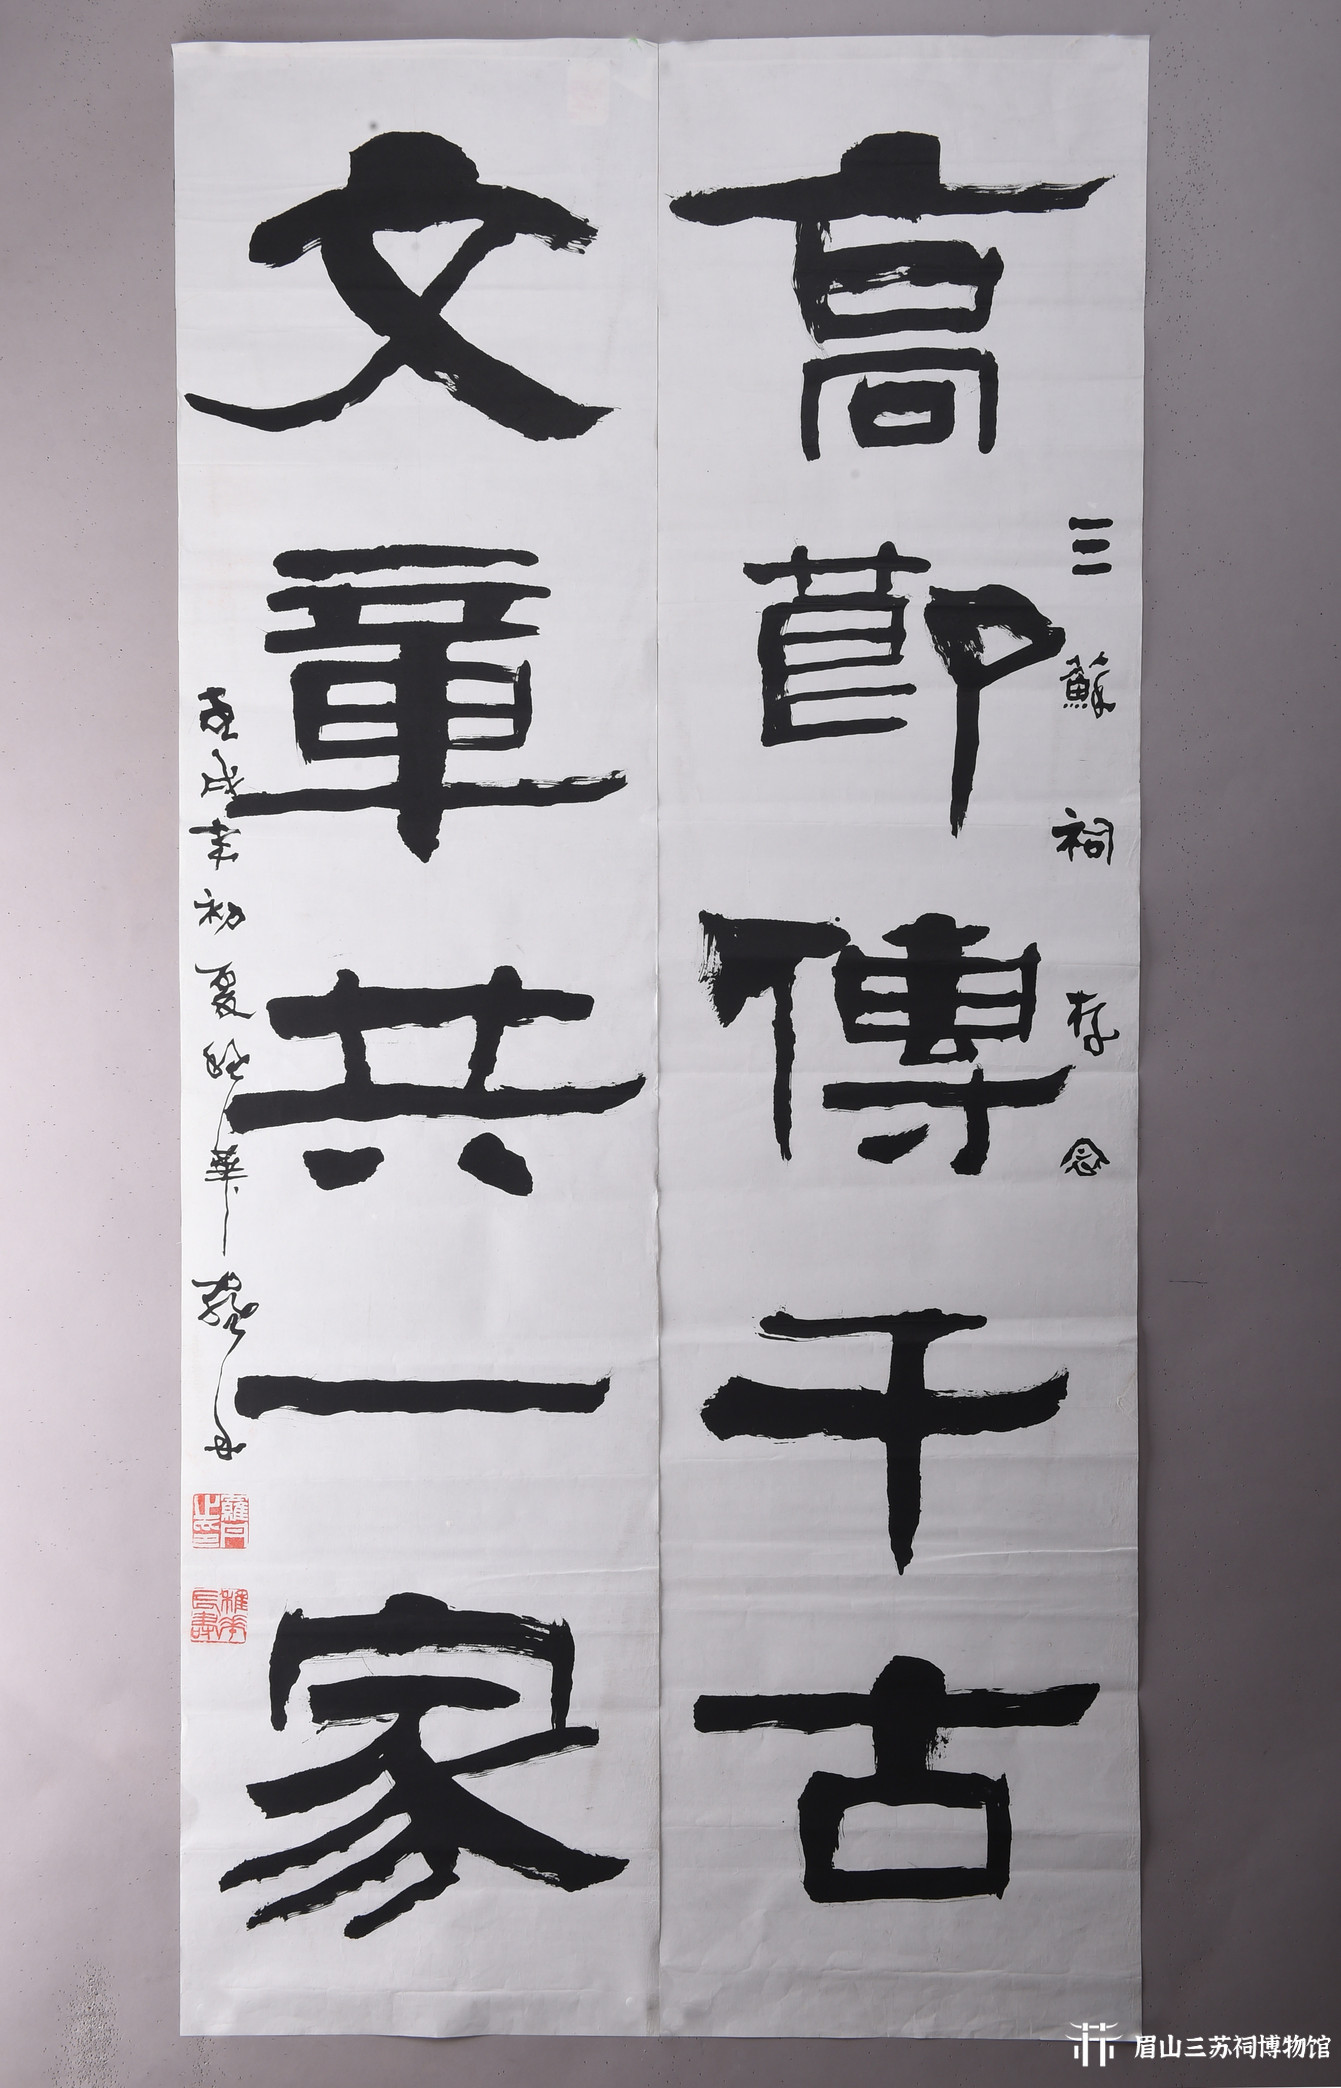 三蘇祠存念
高節傳千古
文章共一家
初夏
華
眉山三苏祠博物馆